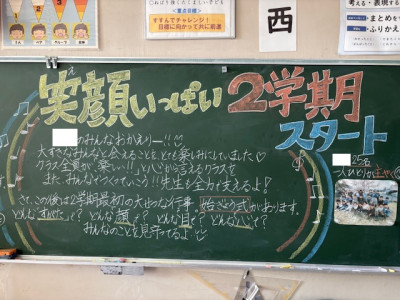 すすんでチャレンジ！
目標に向かって共に前進
西
考える・表現する
まとめを
ふりかえ
え
笑顔いっぱい 2学期
スタート
のみんなおかえりー!!
大すきなみんなと会えることを、とても楽しみにしていました♡
クラス全員が「楽しい!!」と心から言えるクラスを
また、みんなでつくっていこう!!先生も全力で支えるよ！
さて、この後は2学期最初の大せつな行事、始ぎょう式があります。
どんな すがた で？どんな 顔 で？どんな 目 で？どんな 心 で？
みんなのことを見守ってるよ
25名
一人ひとりが主やく